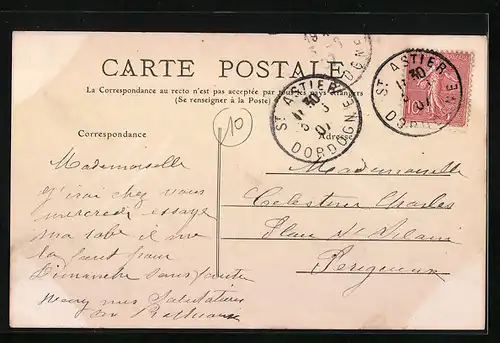 CARTE POSTALE
La Correspondance au recto n'est pas acceptée par tous les pays étrangers
(Se renseigner à la Poste)
ST ASTIER
11 30
DORDOGNE
ST ASTIER
11 30
Correspondance
Adresse
10
Mademoiselle
J'irai chez vous
mercredi essayer
ma robe il me
la faut pour
Dimanche sans faute
mes Salutations
Mademoiselle
Célestine Charles
Place St Silain
Périgueux